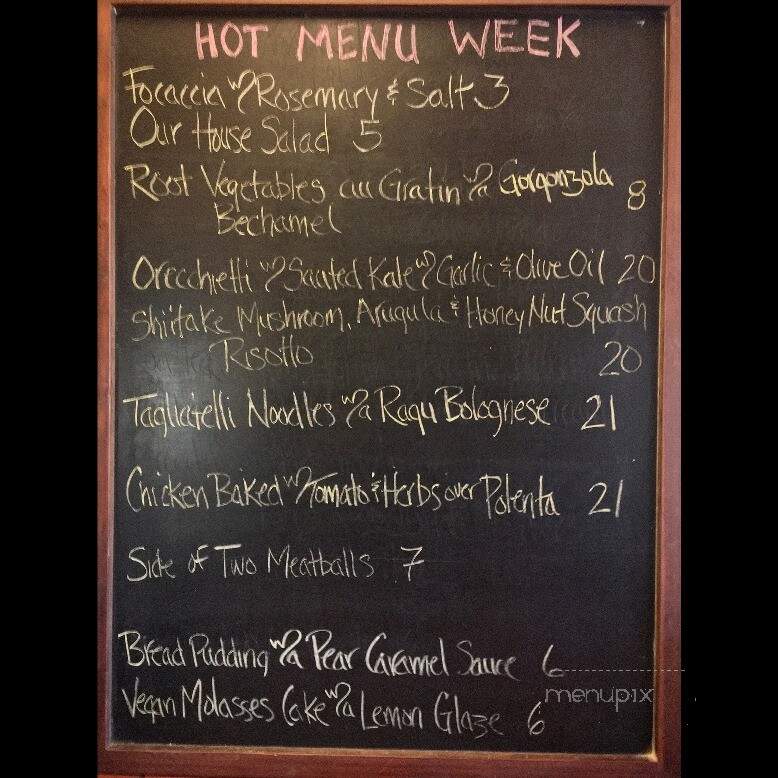 HOT MENU WEEK
Focaccia w/ Rosemary & Salt 3
Our House Salad 5
Root Vegetables au Gratin w/a Gorgonzola 8
Bechamel
Orecchietti w/ Sauted Kale w/ Garlic & Olive Oil 20
Shiitake Mushroom, Arugula & Honey Nut Squash
Risotto 20
Tagliatelli Noodles w/a Ragu Bolognese 21
Chicken Baked w/ Tomato & Herbs over Polenta 21
Side of Two Meatballs 7
Bread Pudding w/a Pear Caramel Sauce 6
menupix
Vegan Molasses Cake w/a Lemon Glaze 6